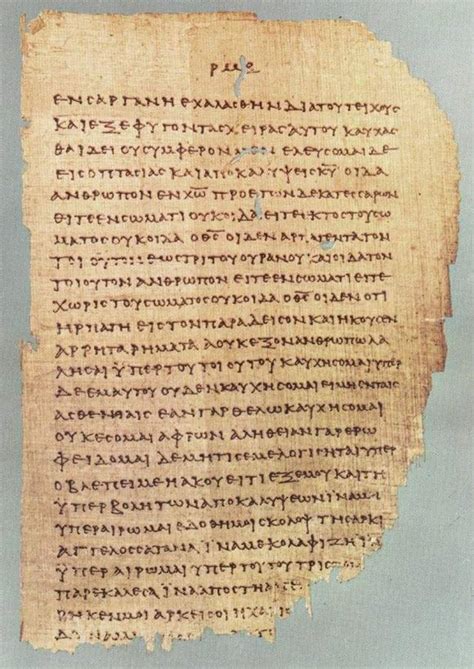 ΡΜΘ
ΕΝΣΑΡΓΑΝΗΕΧΑΛΑΣΘΗΝΔΙΑΤΟΥΤΕΙΧΟΥΣ
ΚΑΙΕΞΕΦΥΓΟΝΤΑΣΧΕΙΡΑΣΑΥΤΟΥΚΑΥΧΑΣ
ΘΑΙΔΕΙΟΥΣΥΜΦΕΡΟΝΜΕΝΕΛΕΥΣΟΜΑΙΔΕ
ΕΙΣΟΠΤΑΣΙΑΣΚΑΙΑΠΟΚΑΛΥΨΕΙΣΚ̅Υ̅ΟΙΔΑ
ΑΝΘΡΩΠΟΝΕΝΧ̅Ω̅ΠΡΟΕΤΩΝΔΕΚΑΤΕΣΣΑΡΩΝ
ΕΙΤΕΕΝΣΩΜΑΤΙΟΥΚΟΙΔΑΕΙΤΕΕΚΤΟΣΤΟΥΣΩ
ΜΑΤΟΣΟΥΚΟΙΔΑΟΘ̅Σ̅ΟΙΔΕΝΑΡΠΑΓΕΝΤΑΤΟΝ
ΤΟΙΟΥΤΟΝΕΩΣΤΡΙΤΟΥΟΥΡΑΝΟΥΚΑΙΟΙΔΑΤΟΝ
ΤΟΙΟΥΤΟΝΑΝΘΡΩΠΟΝΕΙΤΕΕΝΣΩΜΑΤΙΕΙΤΕ
ΧΩΡΙΣΤΟΥΣΩΜΑΤΟΣΟΥΚΟΙΔΑΟΘ̅Σ̅ΟΙΔΕΝΟΤΙ
ΗΡΠΑΓΗΕΙΣΤΟΝΠΑΡΑΔΕΙΣΟΝΚΑΙΗΚΟΥΣΕΝ
ΑΡΡΗΤΑΡΗΜΑΤΑΑΟΥΚΕΞΟΝΑΝΘΡΩΠΩΛΑ
ΛΗΣΑΙΫΠΕΡΤΟΥΤΟΙΟΥΤΟΥΚΑΥΧΗΣΟΜΑΙΫΠΕΡ
ΔΕΕΜΑΥΤΟΥΟΥΔΕΝΚΑΥΧΗΣΟΜΑΙΕΙΜΗΕΝΤΑΙΣ
ΑΣΘΕΝΙΑΙΣΕΑΝΓΑΡΘΕΛΩΚΑΥΧΗΣΟΜΑΙ
ΟΥΚΕΣΟΜΑΙΑΦΡΩΝΑΛΗΘΕΙΑΝΓΑΡΕΡΩ
ΦΕΙΔΟΜΑΙΔΕΜΗΤΙΣΕΜΕΛΟΓΙΣΗΤΑΙΫΠΕΡ
ΟΒΛΕΠΕΙΜΕΗΑΚΟΥΕΙΤΙΕΞΕΜΟΥΚΑΙΤΗ
ΫΠΕΡΒΟΛΗΤΩΝΑΠΟΚΑΛΥΨΕΩΝΪΝΑΜΗ
ΫΠΕΡΑΙΡΩΜΑΙΕΔΟΘΗΜΟΙΣΚΟΛΟΨΤΗΣΑΡΚΙ
ΑΓΓΕΛΟΣΣΑΤΑΝΑΪΝΑΜΕΚΟΛΑΦΙΖΗΪΝΑ
ΫΠΕΡΑΙΡΩΜΑΙΫΠΕΡΤΟΥΤΟΥΤΡΙΣ
ΠΑΡΕΚΑΛΕΣΑΪΝΑΑΠΟΣΤΗΑΠ
ΡΗΚΕΝΜΟΙΑΡΚΕΙΣΟΙΗΧΑΡΙΣ
ΔΥΝΑΜΙΣ